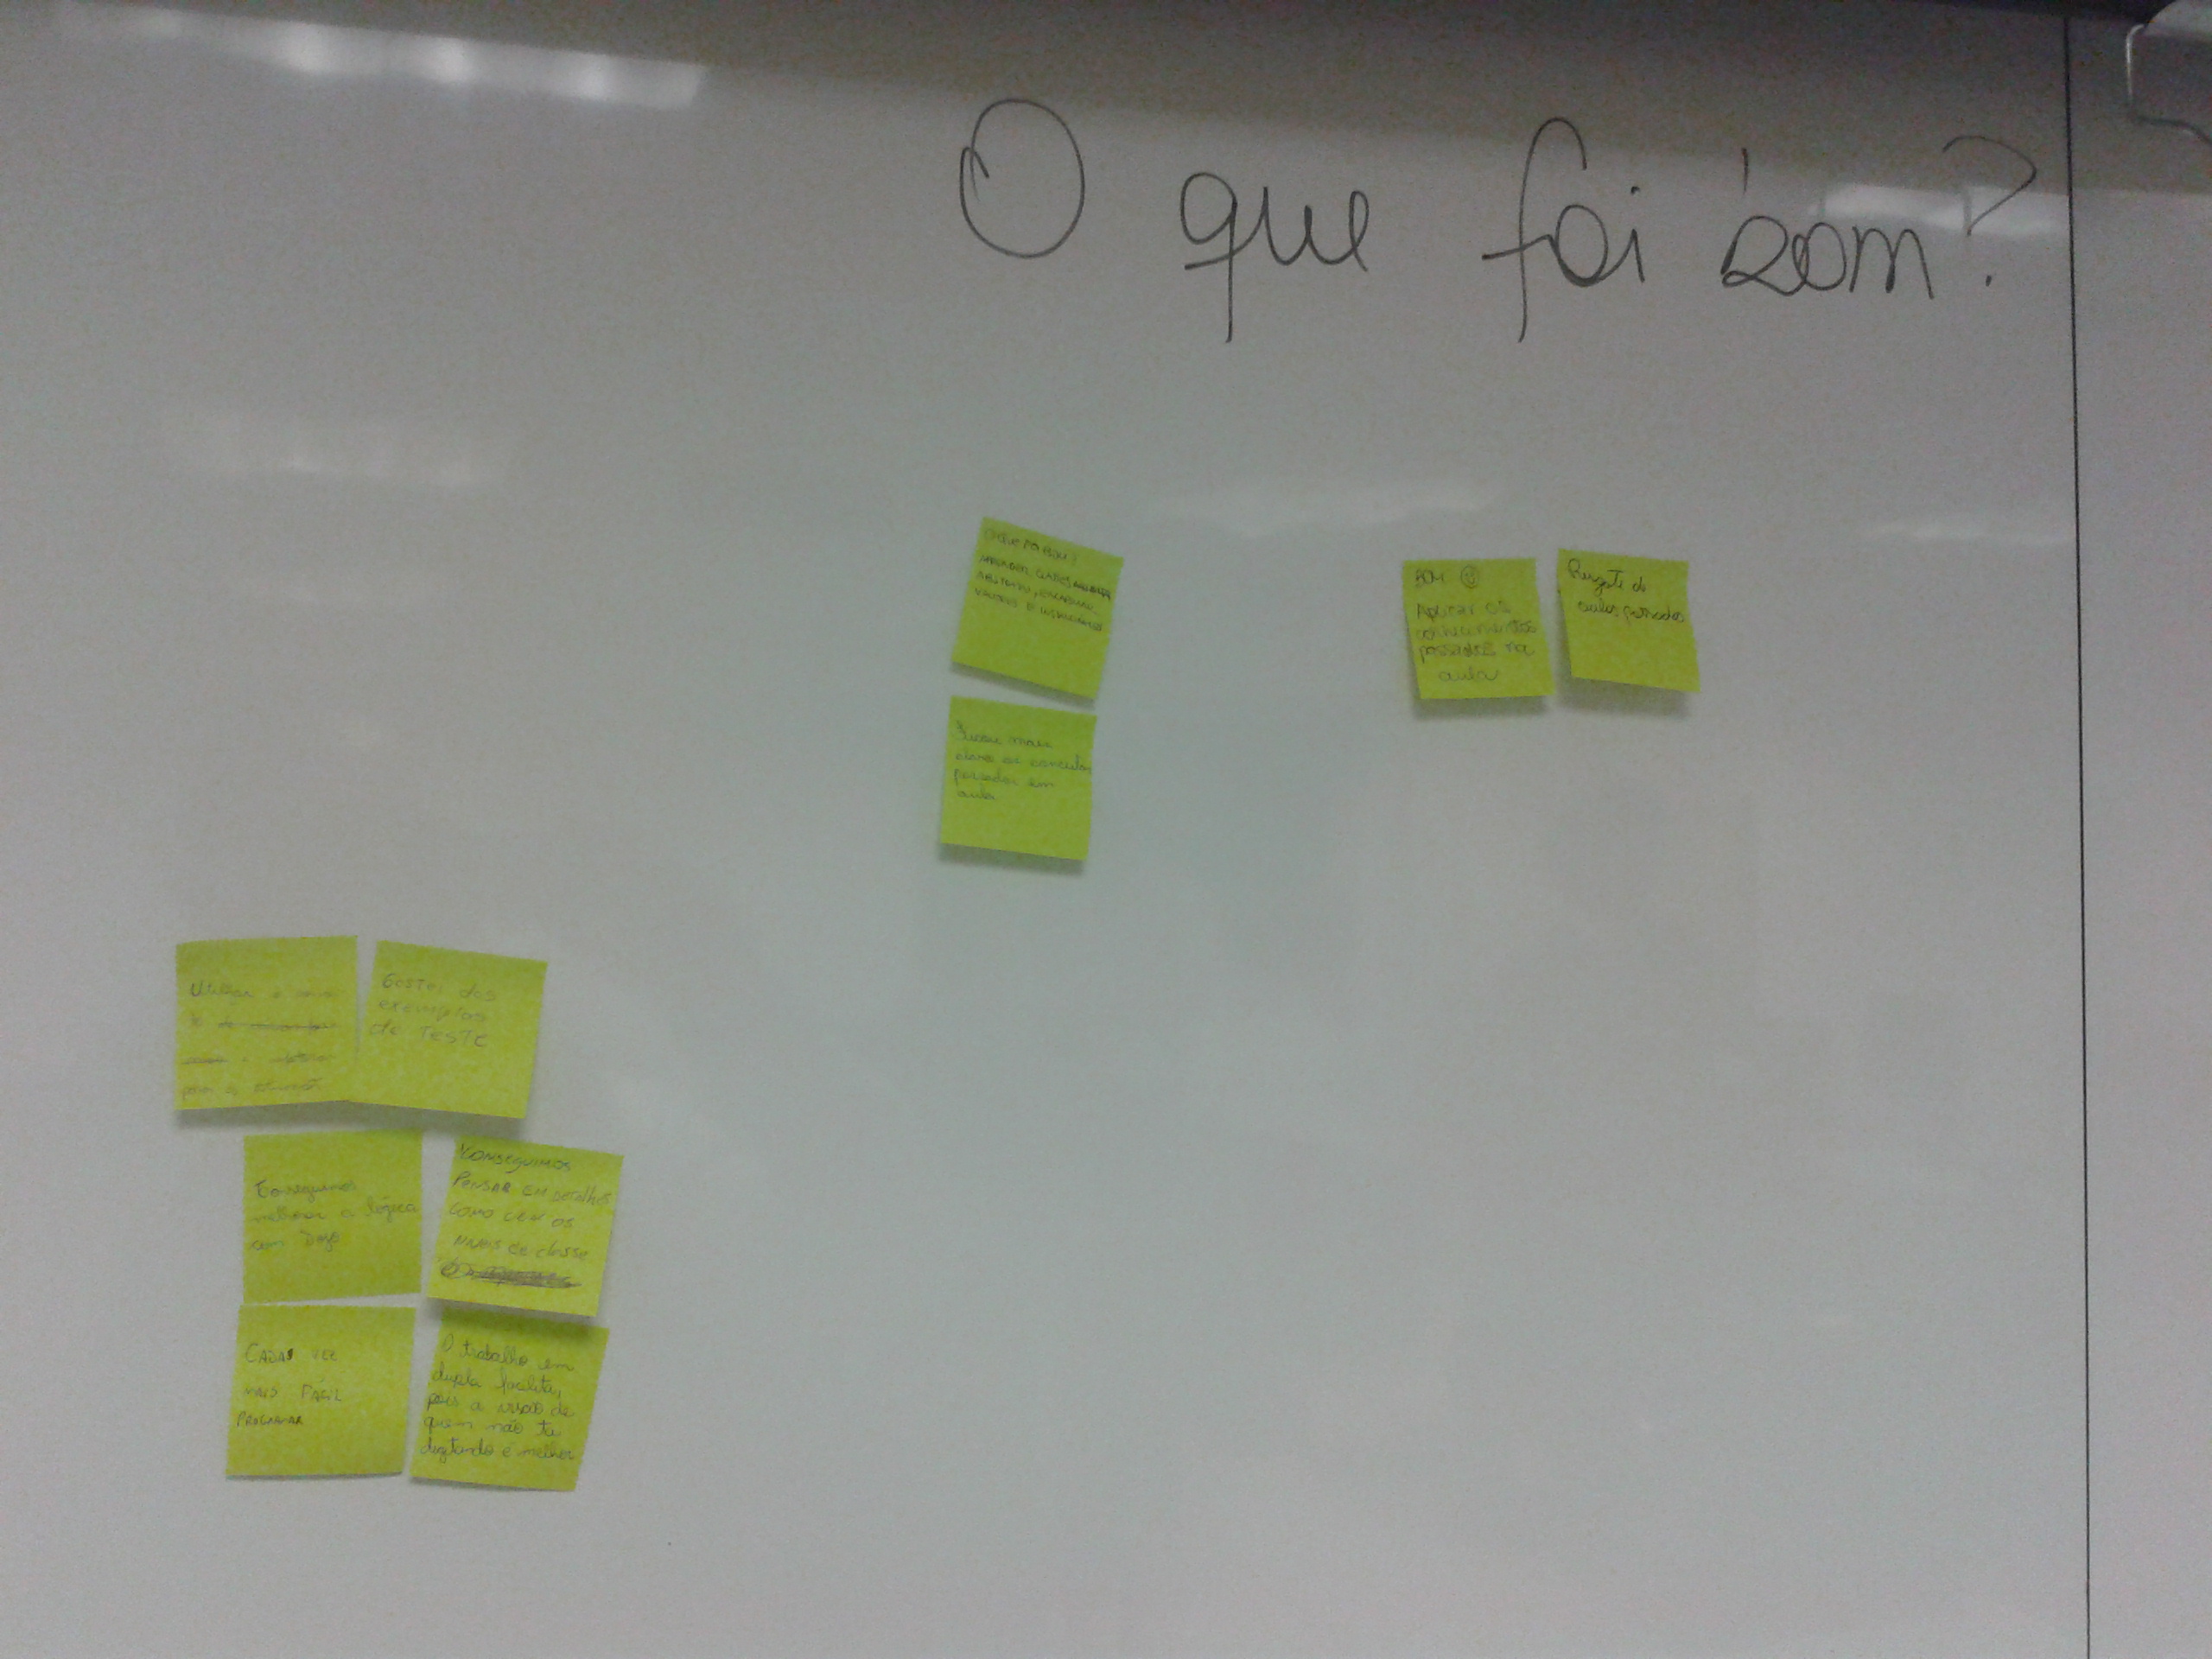 O que foi bom?
O QUE FOI BOM?
ABSTRATO,
VALORES E
Ficou mais
claro os conceitos
passados em
aula
BOM
Aplicar os
conhecimentos
passados na
aula
Resgate de
aulas passadas
Utilizar
para o
Gostei dos
exemplos
de Teste
Conseguimos
melhorar a lógica
com Dojo
CONSEGUIMOS
PENSAR EM detalhes
COMO VER OS
NIVEIS de classe
CADA VEZ
MAIS FÁCIL
PROGRAMAR
O trabalho em
dupla facilita,
pois a visão de
quem não ta
digitando é melhor